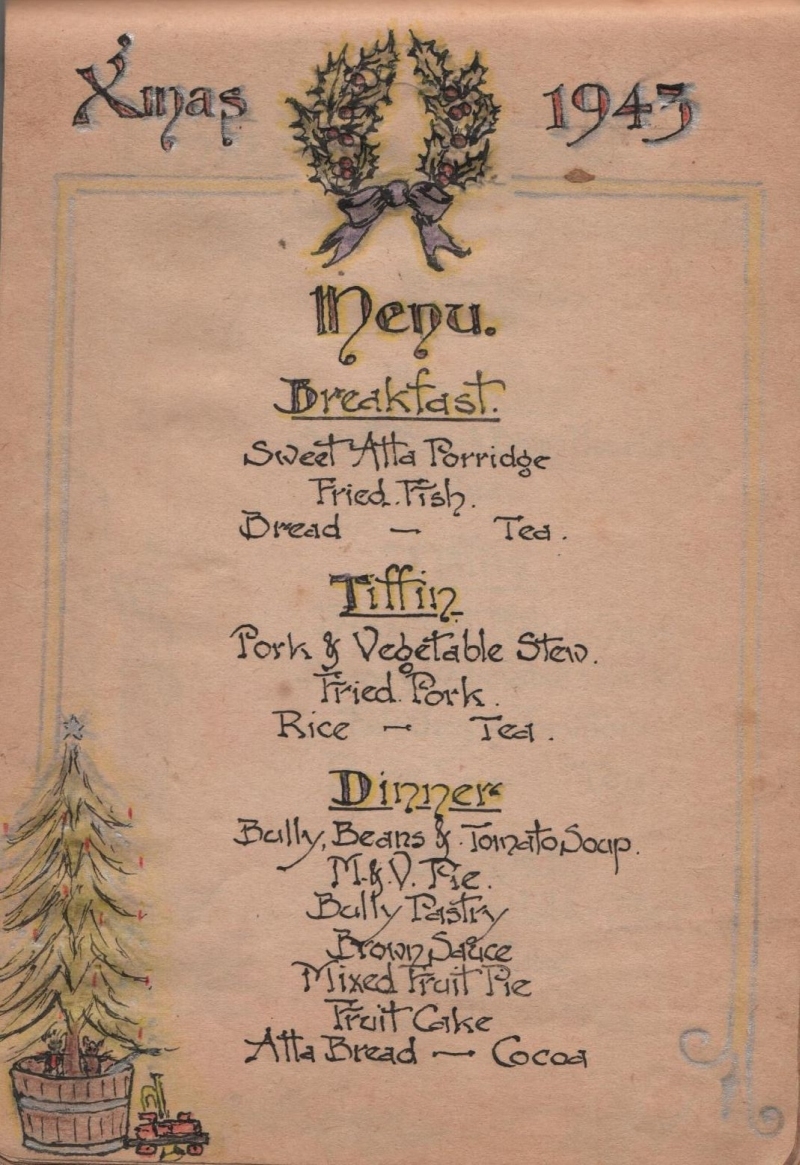 Xmas 1943
Menu.
Breakfast.
Sweet Atta Porridge
Fried Fish.
Bread — Tea.
Tiffin
Pork & Vegetable Stew.
Fried Pork.
Rice — Tea.
Dinner
Bully, Beans & Tomato Soup.
M.&.V. Pie.
Bully Pastry
Brown Sauce
Mixed Fruit Pie
Fruit Cake
Atta Bread — Cocoa